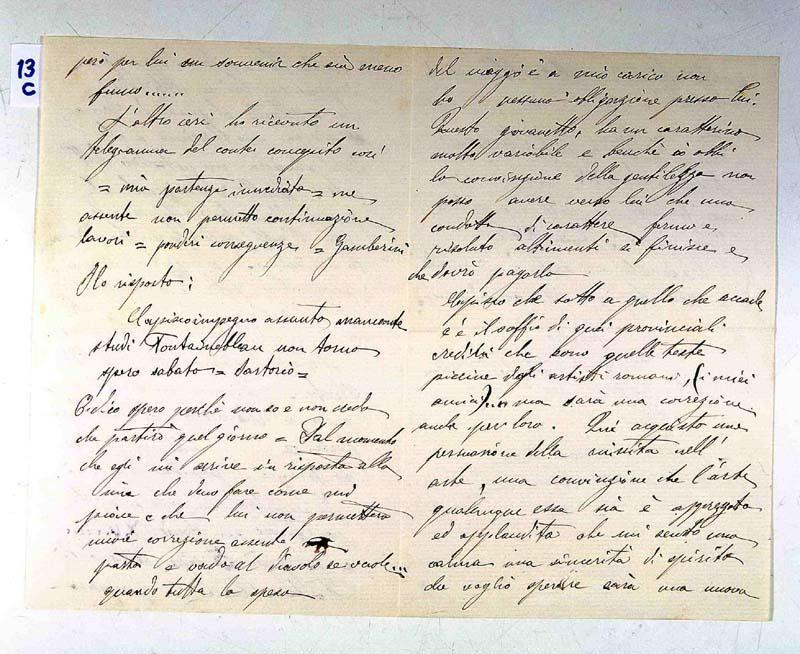 13
C
però per lui un souvenir che sia meno
fumo.....
L'altro ieri ho ricevuto un
telegramma del conte concepito così
= mia partenza immediata = me
assente non permetto continuazione
lavori = ponderi conseguenze = Gamberini
Ho risposto:
Capisco impegno assunto mancando
studi Fontainebleau non torno
spero sabato = Sartorio =
E dico spero perchè non so e non credo
che partirò quel giorno = Dal momento
che egli mi scrive in risposta alla
mia che devo fare come mi
piace e che lui non permetterà
mie correzione assente
parta e vada al Diavolo se vuole...
quando tutta la spesa
del viaggio è a mio carico non
ho nessuna obbligazione presso lui.
Questo giovanetto, ha un caratterino
molto variabile e benchè io abbi
la convinzione della gentilezza non
posso avere verso lui che una
condotta di carattere fermo e
risoluto altrimenti si finisce e
che dovrò pagarla
Capisco che sotto a quello che accade
c'è il soffio di quei provinciali
che sono quelle teste
piccine degli artisti romani, (i miei
amici)... ma sarà una correzione
anche per loro. Qui acquisto una
persuasione della nell'
arte, una convinzione che l'arte
qualunque essa sia è apprezzata
ed applaudita che mi sento una
calma una sincerità di spirito
che voglio sperare sarà una nuova